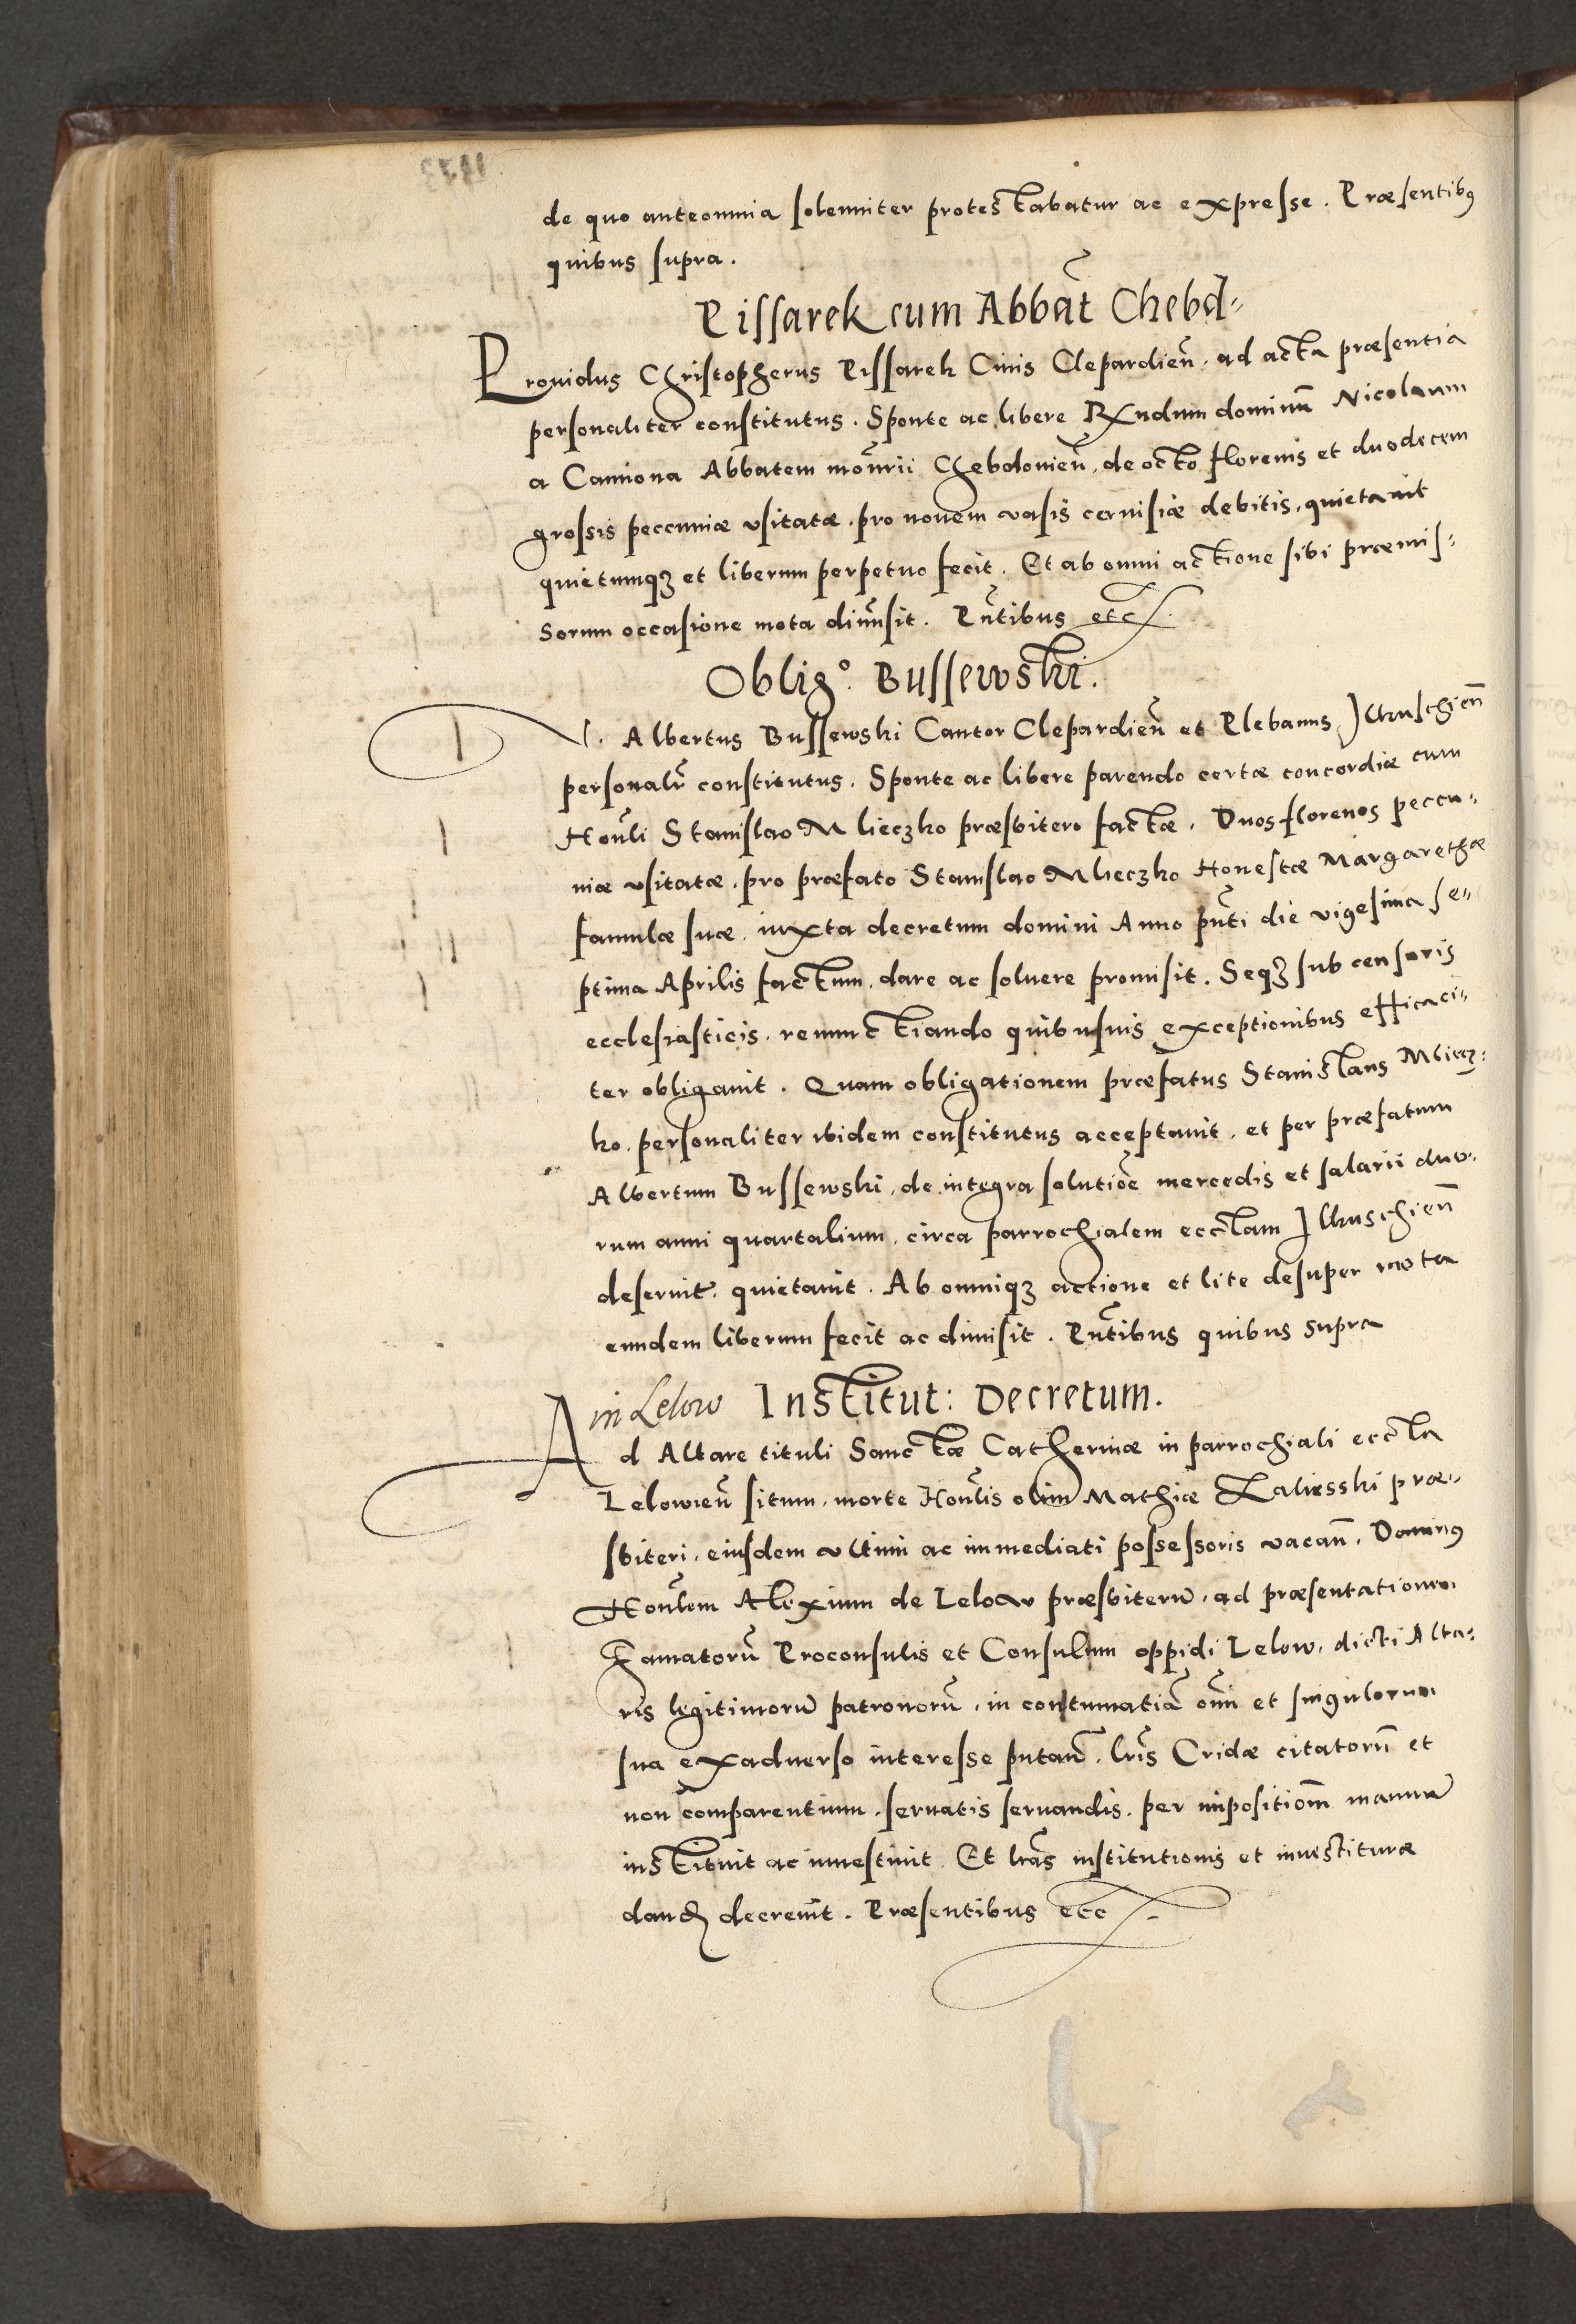 de quo anteomnia solenniter protestabatur ac expresse. Præsentibus
quibus supra.
Pissarek cum Abbat Chebd=
Prouidus Christopherus Pissarek Ciuis Clepardien̄, ad acta præsentia
personaliter constitutus. Sponte ac libere Rxndum dominū Nicolaum
a Camiona Abbatem mon̄rii Chebdouien̄, de octo florenis et duodecem
grossis peccuniæ vsitatæ, pro nouem vasis ceruisiæ debitis, quietauit
quietumqȝ et liberum perpetuo fecit. Et ab omni actione sibi præmis=
sorum occasione mota dimisit. Pn̄tibus etc.
Oblig°. Bussewski.
V. Albertus Bussewski Cantor Clepardien̄ et Plebanus Ilkuschien̄
personalr̄ constitutus. Sponte ac libere parendo certæ concordiæ cum
Hon̄li Stanislao Mlieczko præsbitero factæ. Duos florenos peccu=
niæ vsitatæ, pro præfato Stanislao Mlieczko Honestæ Margarethæ
famulæ suæ, iuxta decretum domini Anno pn̄ti die vigesima se=
ptima Aprilis factum, dare ac soluere promisit. Seqȝ sub censuris
ecclesiasticis, renunctiando quibusuis exceptionibus efficaci=
ter obligauit. Quam obligationem præfatus Stanislaus Mliecz=
ko, personaliter ibidem constitutus acceptauit, et per præfatum
Albertum Bussewski, de integra solutiōe mercedis et salarii duo=
rum anni quartalium, circa parrochialem eccl̄am Ilkuschien̄
deseruit. quietauit. Ab omniqȝ actione et lite desuper mota
eundem liberum fecit ac dimisit. Pn̄tibus quibus supra
in Lelow Institut: Decretum.
Ad Altare tituli Sanctæ Catherinæ in parrochiali eccl̄a
Lelowien̄ situm, morte Hon̄lis olim Mathiæ Zaliesski præ=
sbiteri, eiusdem vltimi ac immediati possessoris vacan̄. Dominus
Hon̄lem Alexium de Lelow præsbiterū, ad præsentationem
Famatorū Proconsulis et Consulum oppidi Lelow, dicti Alta=
ris legitimorū patronorū, in contumatiā om̄i et singulorum
sua exaduerso interesse putan̄, lr̄is Cridæ citatorū et
non comparentium, seruatis seruandis, per impositiōm manuū
instituit ac inuestiuit. Et lr̄as institutionis et inuestituræ
dand decreuit. Præsentibus etc.